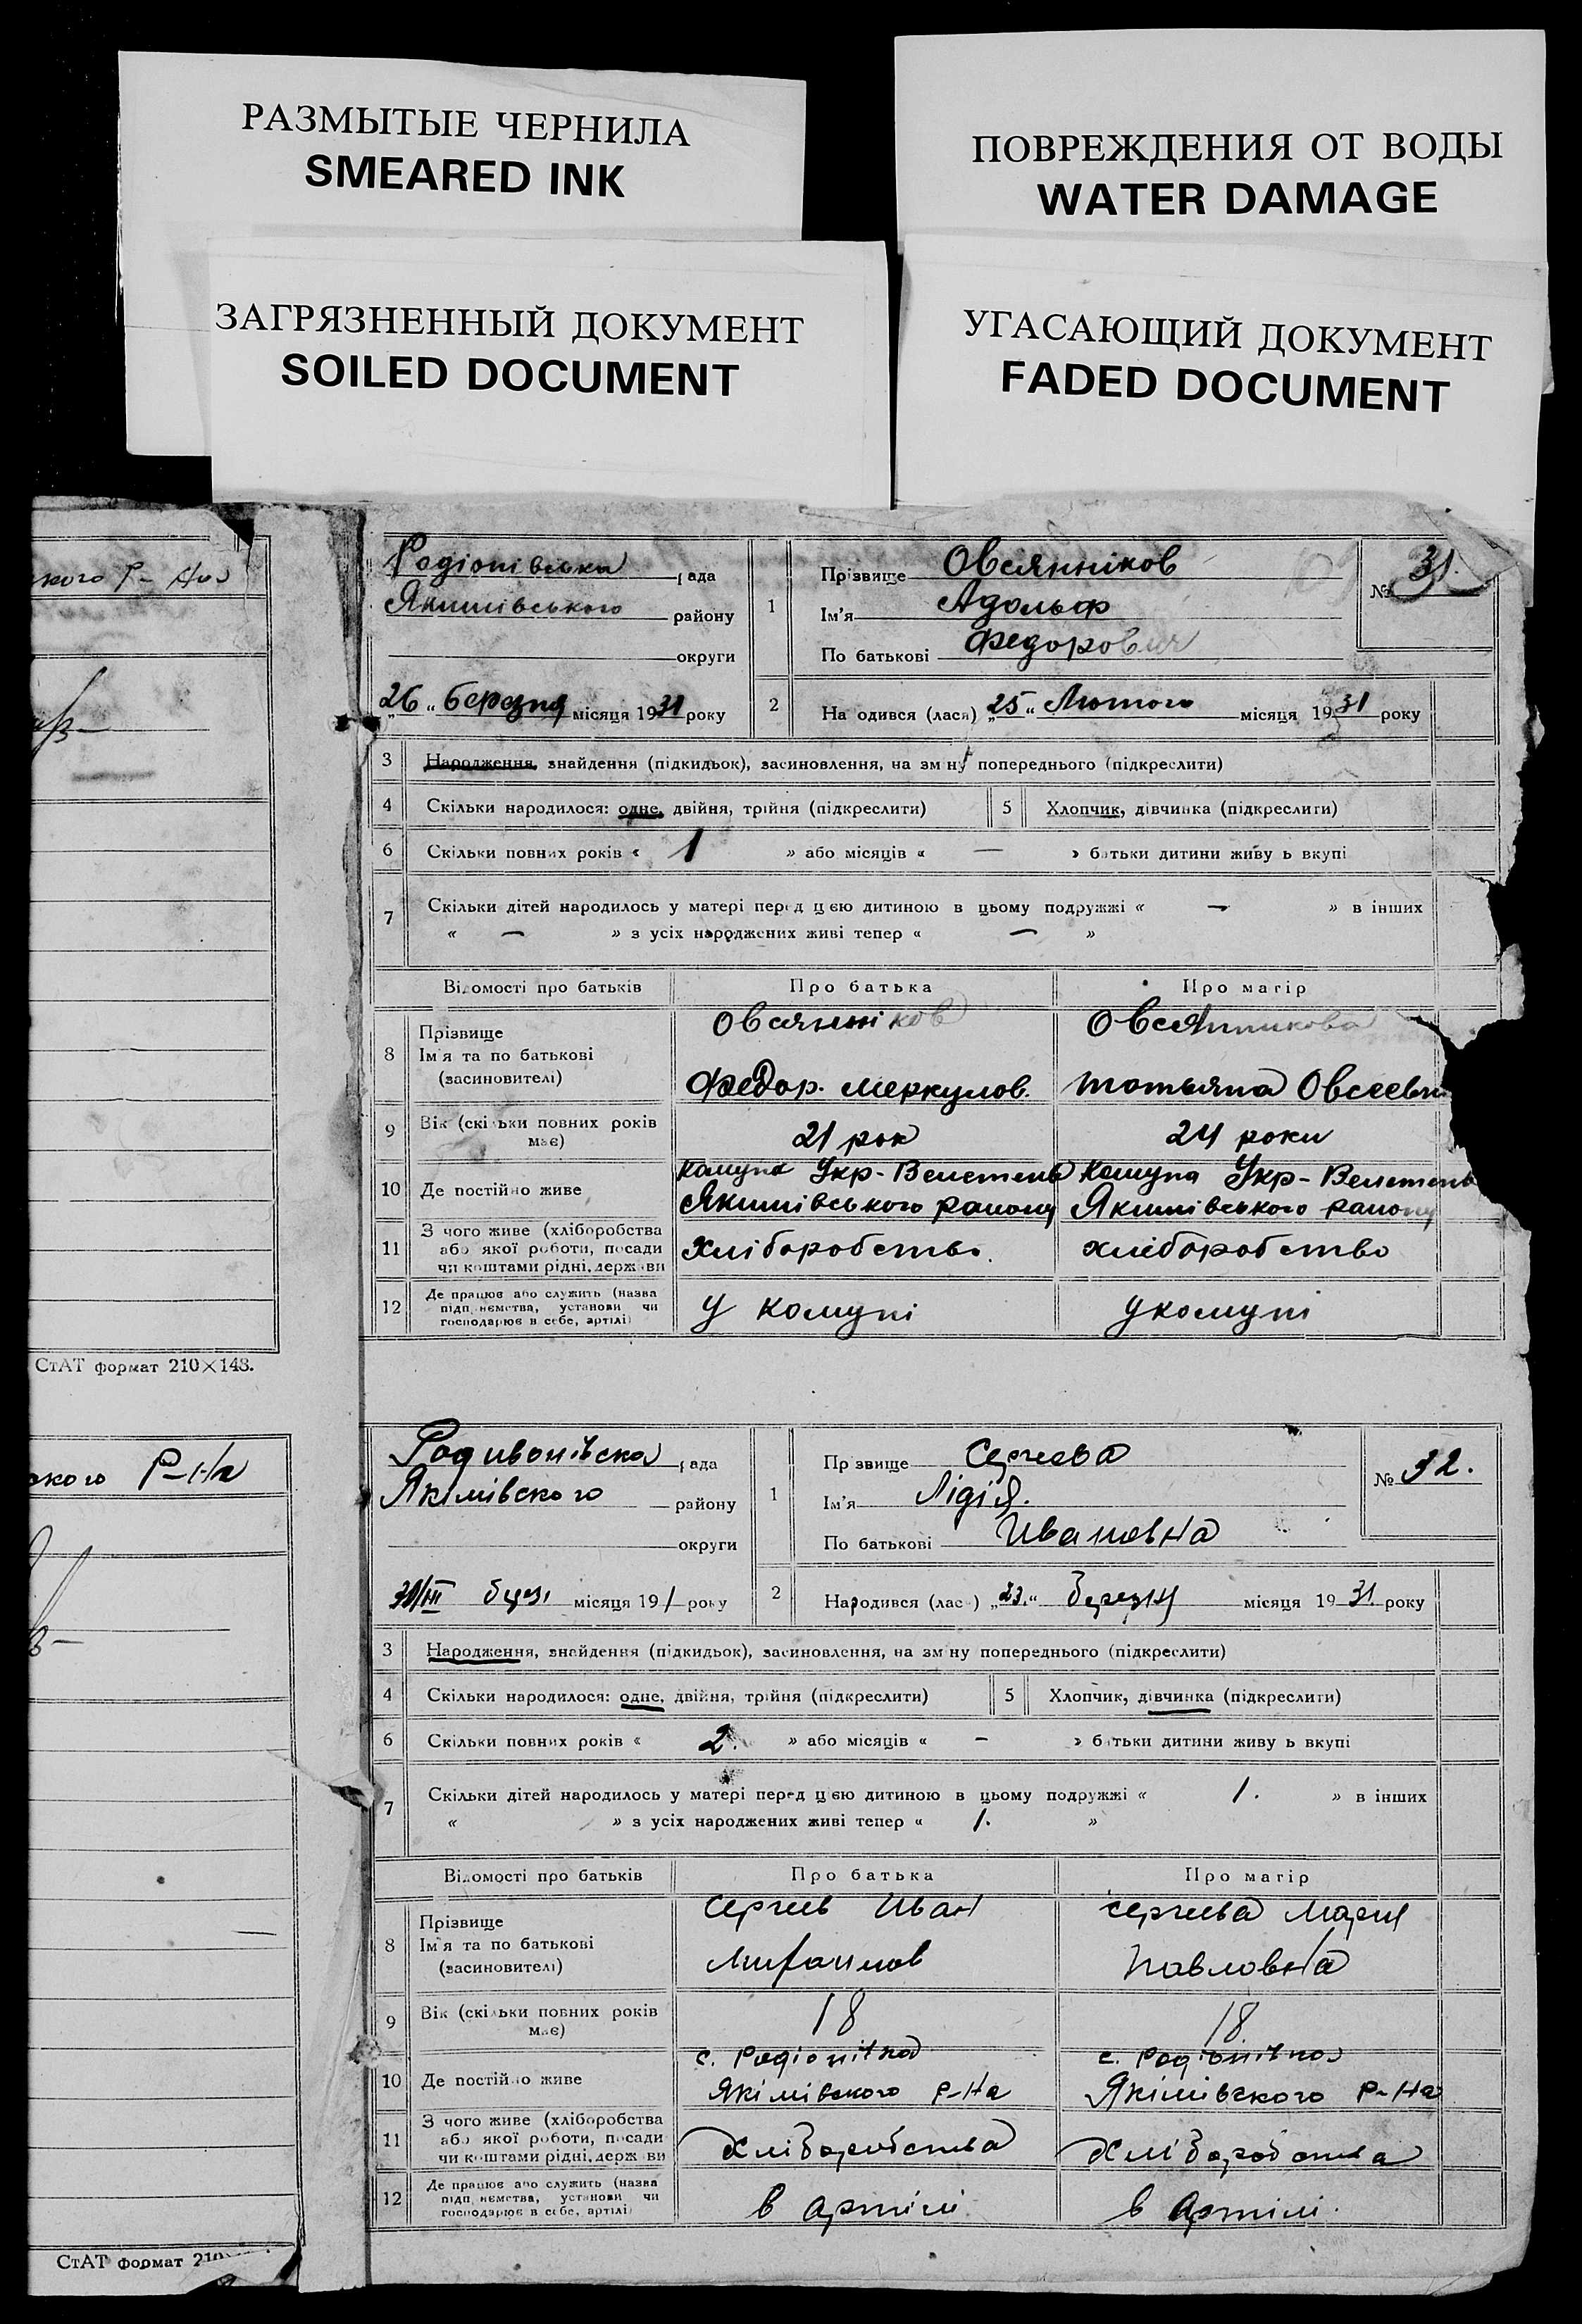 РАЗМЫТЫЕ ЧЕРНИЛА
SMEARED INK
ПОВРЕЖДЕНИЯ ОТ ВОДЫ
WATER DAMAGE
ЗАГРЯЗНЕННЫЙ ДОКУМЕНТ
SOILED DOCUMENT
УГАСАЮЩИЙ ДОКУМЕНТ
FADED DOCUMENT
ского Р-на
СтАТ формат 210×148.
ского Р-на
СтАТ формат
Родіонівська рада
Якимівського району
округи
„26" березня місяця 1931 року
1
Прізвище Овсянніков
Ім'я Адольф
По батькові Федорович
№ 31.
2 Народився (лася) „25" Лютого місяця 1931 року
3 Народження, знайдення (підкидьок), засиновлення, на зміну попереднього (підкреслити)
4 Скільки народилося: одне, двійня, трійня (підкреслити) 5 Хлопчик, дівчинка (підкреслити)
6 Скільки повних років « 1 » або місяців « — » батьки дитини живуть вкупі
7 Скільки дітей народилось у матері перед цією дитиною в цьому подружжі « — » в інших
« — » з усіх народжених живі тепер « — »
Відомості про батьків Про батька Про матір
8 Прізвище Ім'я та по батькові (засновителі)
Овсянніков Овсянникова
Федор. Меркулов. Татьяна
9 Вік (скільки повних років має) 21 рок 24 роки
10 Де постійно живе
Комуна Укр-Велетень Комуна Укр-Велетень
Якимівського району Якимівського району
11 З чого живе (хліборобства
або якої роботи, посади
чи коштами рідні, держави
хліборобство. хліборобство
12 Де працює або служить (назва
підприємства, установи чи
господарює в себе, артілі)
У комуні У комуні
Родивонівска рада
Якімівского району
округи
місяця 191 року
1
Прізвище Сергеева
Ім'я Лідія.
По батькові Ивановна
№ 32.
2 Народився (лася) „23." березня місяця 1931. року
3 Народження, знайдення (підкидьок), засиновлення, на зміну попереднього (підкреслити)
4 Скільки народилося: одне, двійня, трійня (підкреслити) 5 Хлопчик, дівчинка (підкреслити)
6 Скільки повних років « 2. » або місяців « - » батьки дитини живуть вкупі
7 Скільки дітей народилось у матері перед цією дитиною в цьому подружжі « 1. » в інших
« » з усіх народжених живі тепер « 1. »
Відомості про батьків Про батька Про матір
8 Прізвище Ім'я та по батькові (засиновителі)
Сергеев Иван Сергеева Мария
Павловна
9 Вік (скільки повних років має) 18 18
10 Де постійно живе
с. Родіонівка с. Родіонівка
Якімівского Р-На Якімівского Р-На
11 З чого живе (хліборобства
або якої роботи, посади
чи коштами рідні, держави
Хліборобства Хліборобства
12 Де працює або служить (назва
підприємства, установи чи
господарює в себе, артілі)
в артілі в артілі.